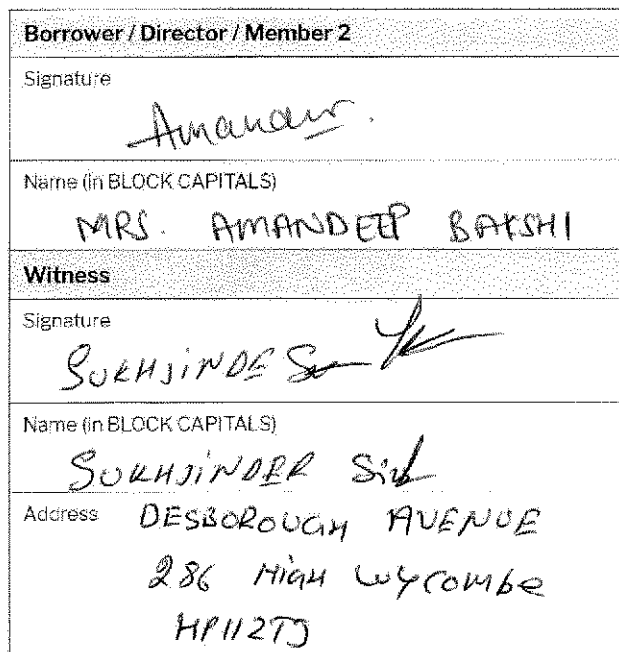 Borrower / Director / Member 2
Signature
Name (in BLOCK CAPITALS)
MRS. AMANDEEP BAKSHI
Witness
Signature
SUKHJiNDE
Name (in BLOCK CAPITALS)
SUKHJiNDER
Address DESBOROUGH AVENUE
286 HiGH WYCOMBe
HP112TJ